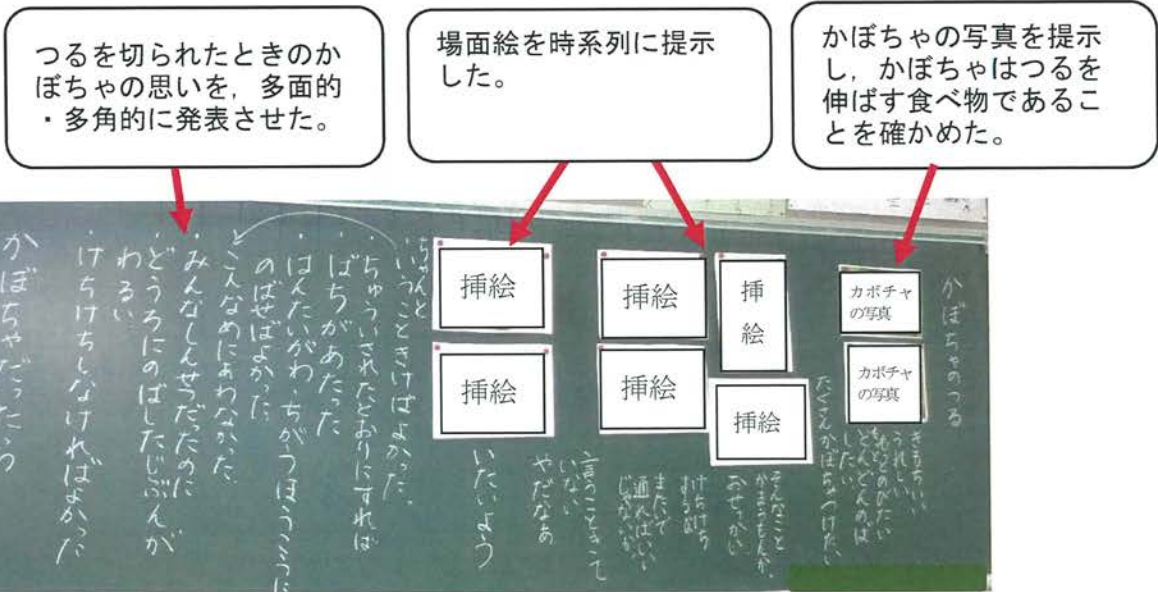 つるを切られたときのか
ぼちゃの思いを，多面的
・多角的に発表させた。
場面絵を時系列に提示
した。
かぼちゃの写真を提示
し，かぼちゃはつるを
伸ばす食べ物であるこ
とを確かめた。
かぼちゃのつる
カボチャ
の写真
カボチャ
の写真
きもちいい
うれしい
もっとのびたい
どんどんのば
したい
たくさんかぼちゃつけたい
挿
絵
挿絵
そんなこと
かまうもんか。
おせっかい
けちけち
するな
またいで
通ればいい
じゃないか。
挿絵
挿絵
言うこときいて
いない
やだなあ
挿絵
挿絵
いたいよう
ちゃんと
いうこときけばよかった。
・ちゅういされたとおりにすれば
ばちがあたった
・はんたいがわ・ちがうほうこうに
のばせばよかった
こんなめにあわなかった
・みんなしんせつだったのに
・どうろにのばしたじぶんが
わるい
・けちけちしなければよかった
かぼちゃだったら